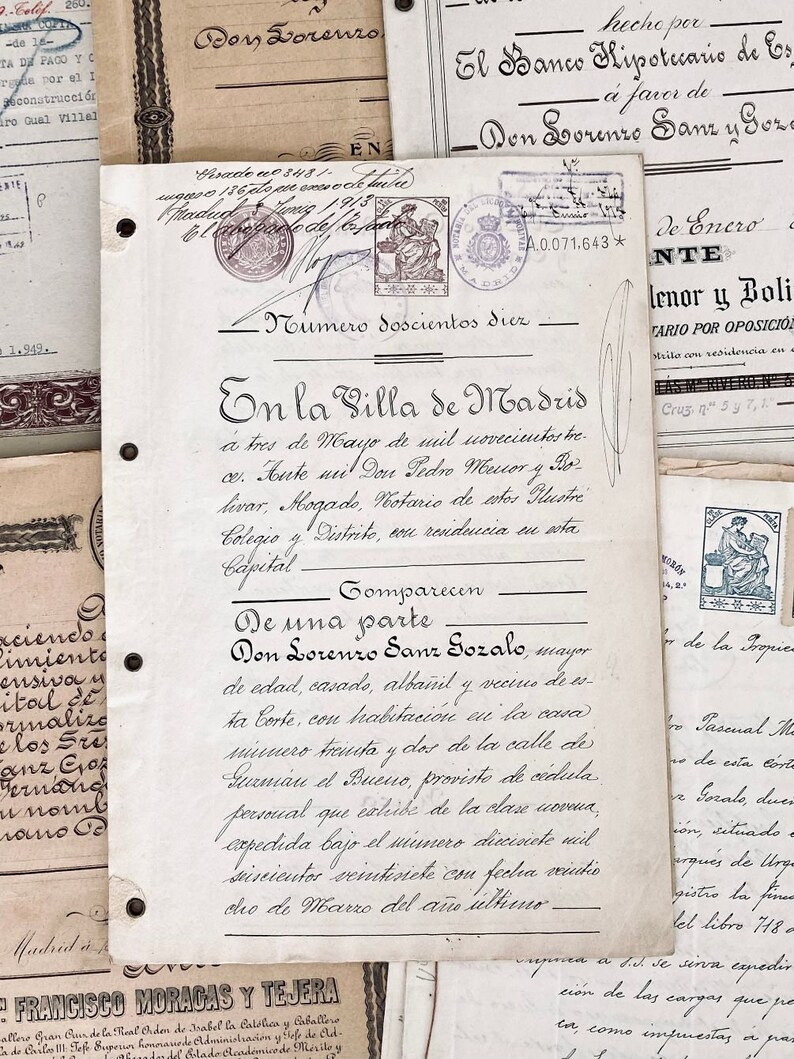 Telef. 260.
-de la-
TA DE PAGO Y C
orgada por el I
Reconstrucción
ro Gual Villal
e 1.949.
Don Lorenzo
EN
hecho por
El Banco Hipotecario de Es
á favor de
Don Lorenzo Sanz y Goza
de Enero
ANTE
Menor y Boli
TARIO POR OPOSICIÓN
strito con residencia en
ÁS Mª RIVERO, Nº 6
Cruz, n.os 5 y 7, 1.º
ingreso 136 pts por exceso de timbre
Madrid 3 Junio 1913
El Abogado del Estado
NOTARIA DEL LICDO. MENOR BOLIVAR
MADRID
A.0.071,643 *
Número doscientos diez
En la Villa de Madrid
á tres de Mayo de mil novecientos tre-
ce. Ante mi Don Pedro Menor y Bo-
livar, Abogado, Notario de estos Ilustre
Colegio y Distrito, con residencia en esta
Capital
Comparecen
De una parte
Don Lorenzo Sanz Gozalo, mayor
de edad, casado, albañil y vecino de es-
ta Corte, con habitación en la casa
número treinta y dos de la calle de
Guzman el Bueno, provisto de cédula
personal que exhibe de la clase novena,
expedida bajo el número diecisiete mil
seiscientos veintisiete con fecha veintio
cho de Marzo del año último
haciendo
cimiento
ensiva y
ital de
ormaliza
e los Sres
anz Goz
ernand
u nomb
mano D
Madrid á
n. FRANCISCO MORAGAS Y TEJERA
allero Gran Cruz de la Real Orden de Isabel la Católica y Caballero
la de Carlos III: Jefe Superior honorario de Administracion y Jefe de Ad-
Abogados del Estado: Académico de Mérito y
MORÓN
14, 2.º
or de la Propied
ro Pascual M
no de esta córt
z Gozalo, due
ión, situado e
arqués de Urq
gistro la finc
del libro 718 d
Suplica á S.S. se sirva expedir
ción de las cargas que pe
ca, como impuestas á par